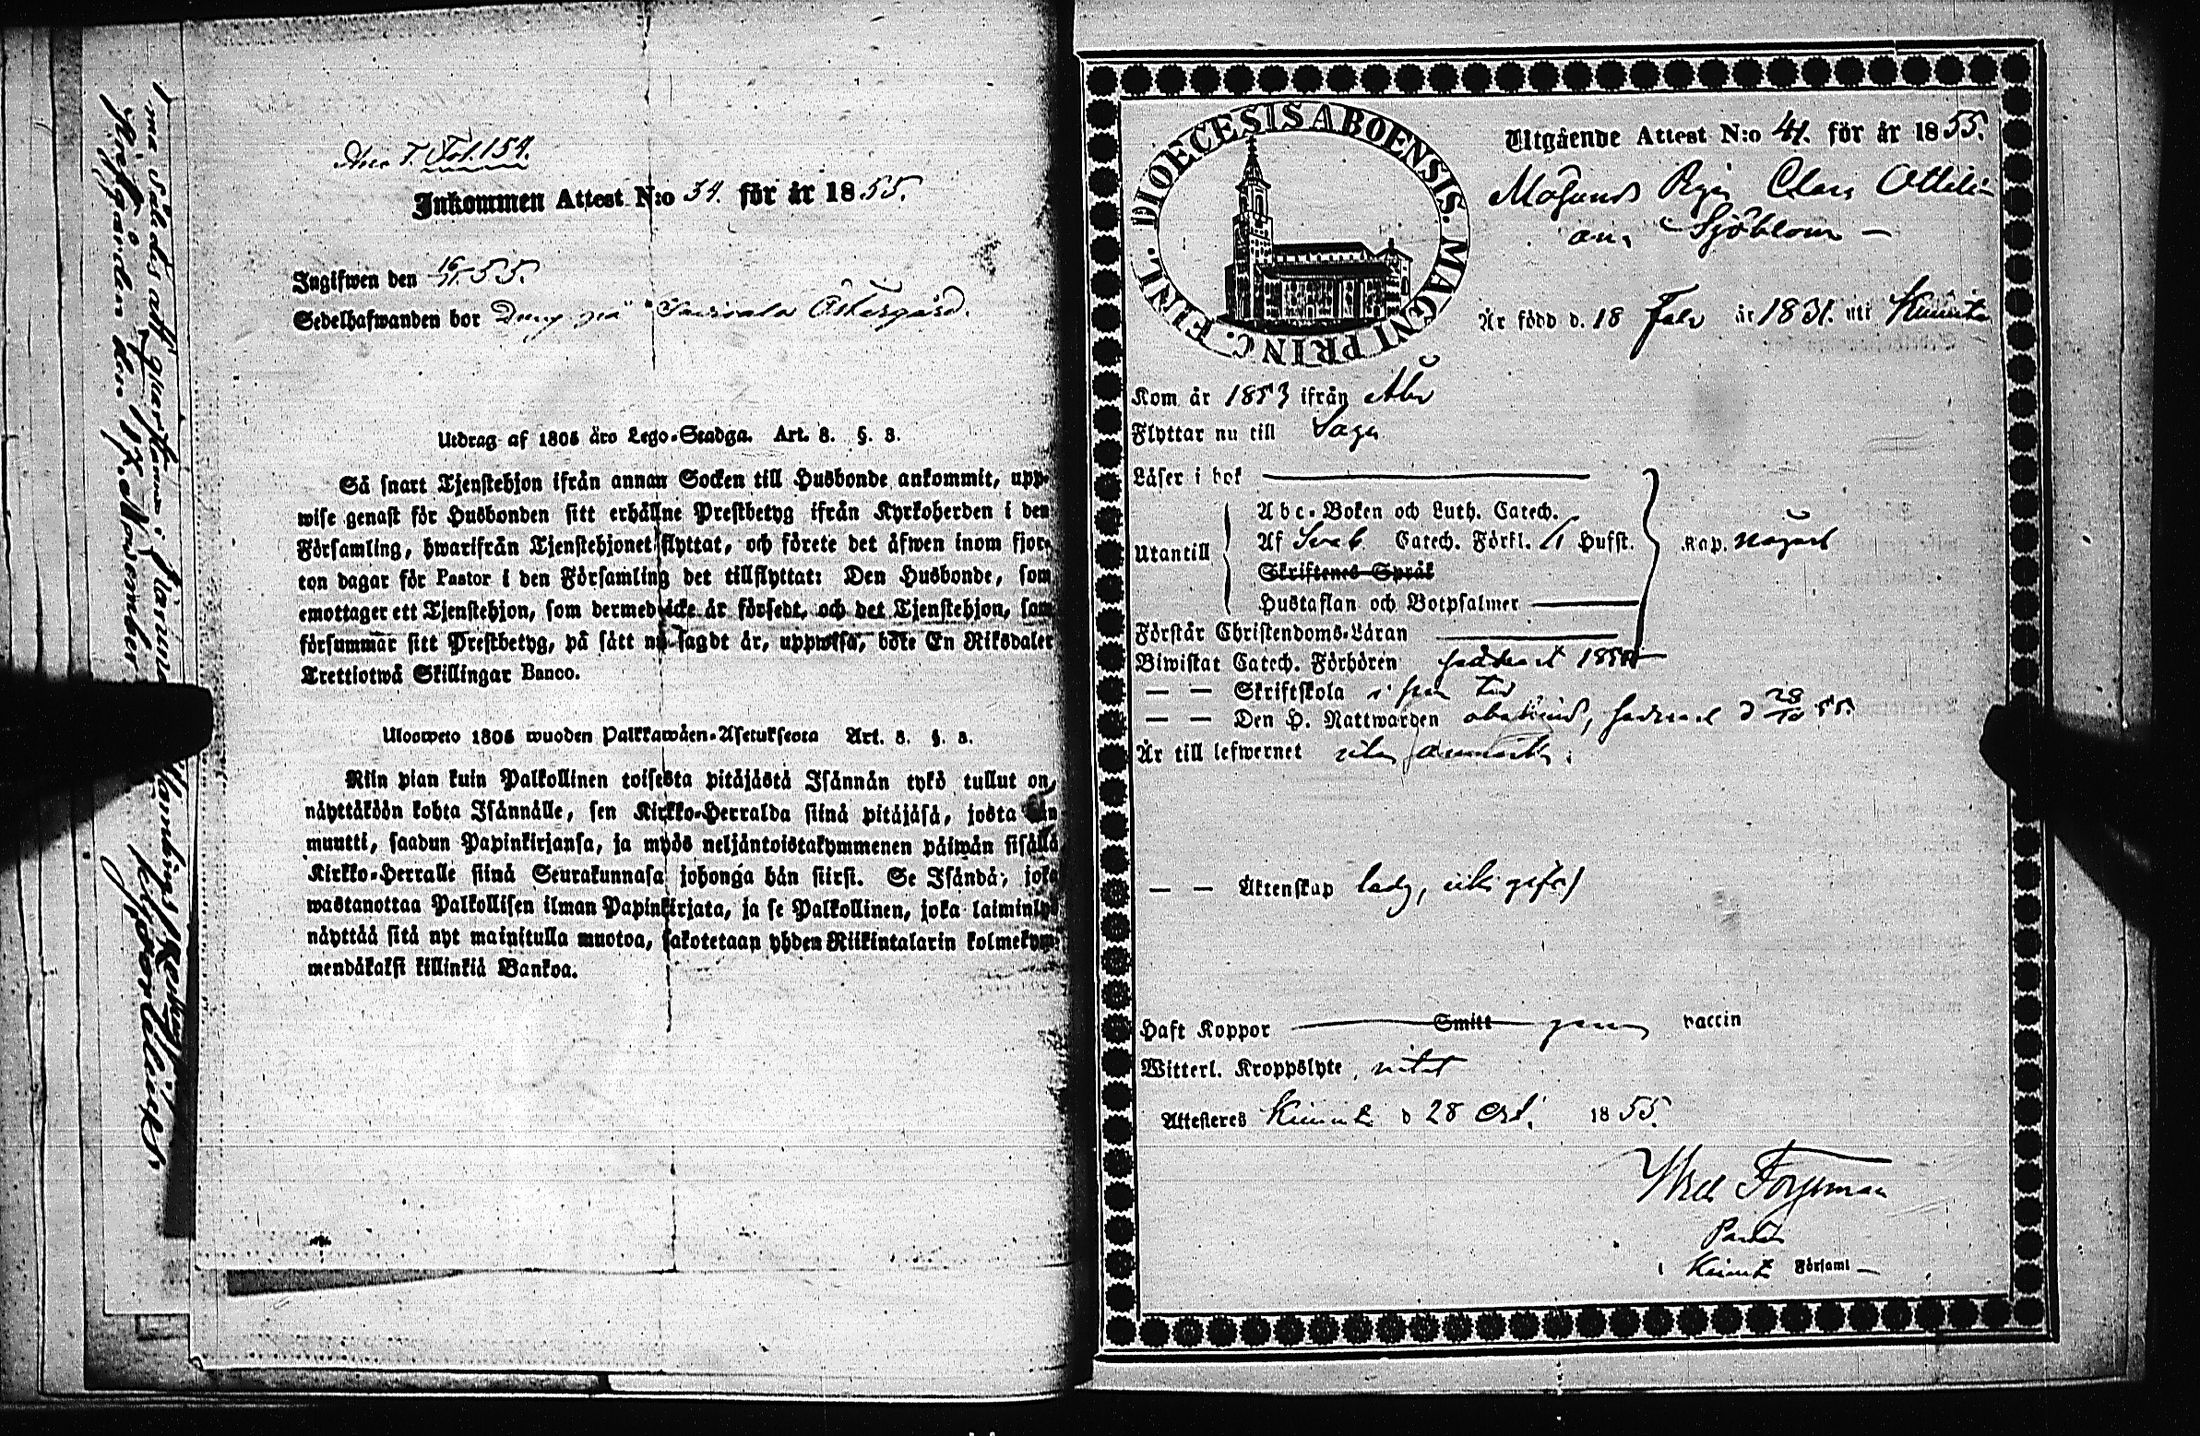 Fol. 154.
Inkommen Attest N:o 34. för år 1855.
Ingifwen den 55.
Sedelhafwanden bor på Östergård.
Utdrag af 1805 åro Lego-Stadga. Art. 8. §. 8.
Så snart Tjenstehjon ifrån annan Socken till Husbonde ankommit, upp-
wise genast för Husbonden sitt erhållne Prestbetyg ifrån Kyrkoherden i den
Församling, hwarifrån Tjenstehjonet flyttat, och förete det äfwen inom fjor-
ton dagar för Pastor i den Församling det tillflyttat: Den Husbonde, som
emottager ett Tjenstehjon, som dermed icke är försedt, och det Tjenstehjon, som
försummar sitt Prestbetyg, på sätt nu sagdt är, uppwisa, böte En Riksdaler
Trettiotwå Skillingar Banco.
Uloosweto 1805 wuoden Palkkawäen-Asetuksesta Art. 8. §. 8.
Niin pian kuin Palkollinen toisesta pitäjästä Isännän tykö tullut on,
näyttäköön kohta Isännälle, sen Kirkko-Herralda siinä pitäjäsä, josta hän
muutti, saadun Papinkirjansa, ja myös neljäntoistakymmenen päiwän sisällä
Kirkko-Herralle siinä Seurakunnasa johonga hän siirsi. Se Isändä, joka
wastanottaa Palkollisen ilman Papinkirjata, ja se Palkollinen, joka laiminlyö
näyttää sitä nyt mainitulla muotoa, sakotetaan yhden Riikintalarin kolmekym-
mendäkaksi killinkiä Bankoa.
DIOECESIS ABOENSIS. MAGNI PRINC. FINL.
Utgående Attest N:o 41. för år 1855.
Sjöblom
Är född d. 18 Febr år 1831. uti Kimito
Kom år 1853 ifrån Åbo
Flyttar nu till Sagu
Läser i bok
Utantill
Abc-Boken och Luth. Catech.
Af Sveb. Catech. Förkl. Hufst.
Skriftenes Språk
Hustaflan och Botpsalmer
Kap. något
Förstår Christendoms-Läran
Biwistat Catech. Förhören
— — Skriftskola i sin tid
— — Den H. Nattwarden obehindr, senast d 28/10 55.
Är till lefwernet utan anmärkn.
— — Äktenskap ledig, icke gift
Haft Koppor Smitt genom vaccin
Witterl. Kroppslyte, intet
Attesteres Kimito d 28 Oct. 1855.
Pastor
i Kimito Församl